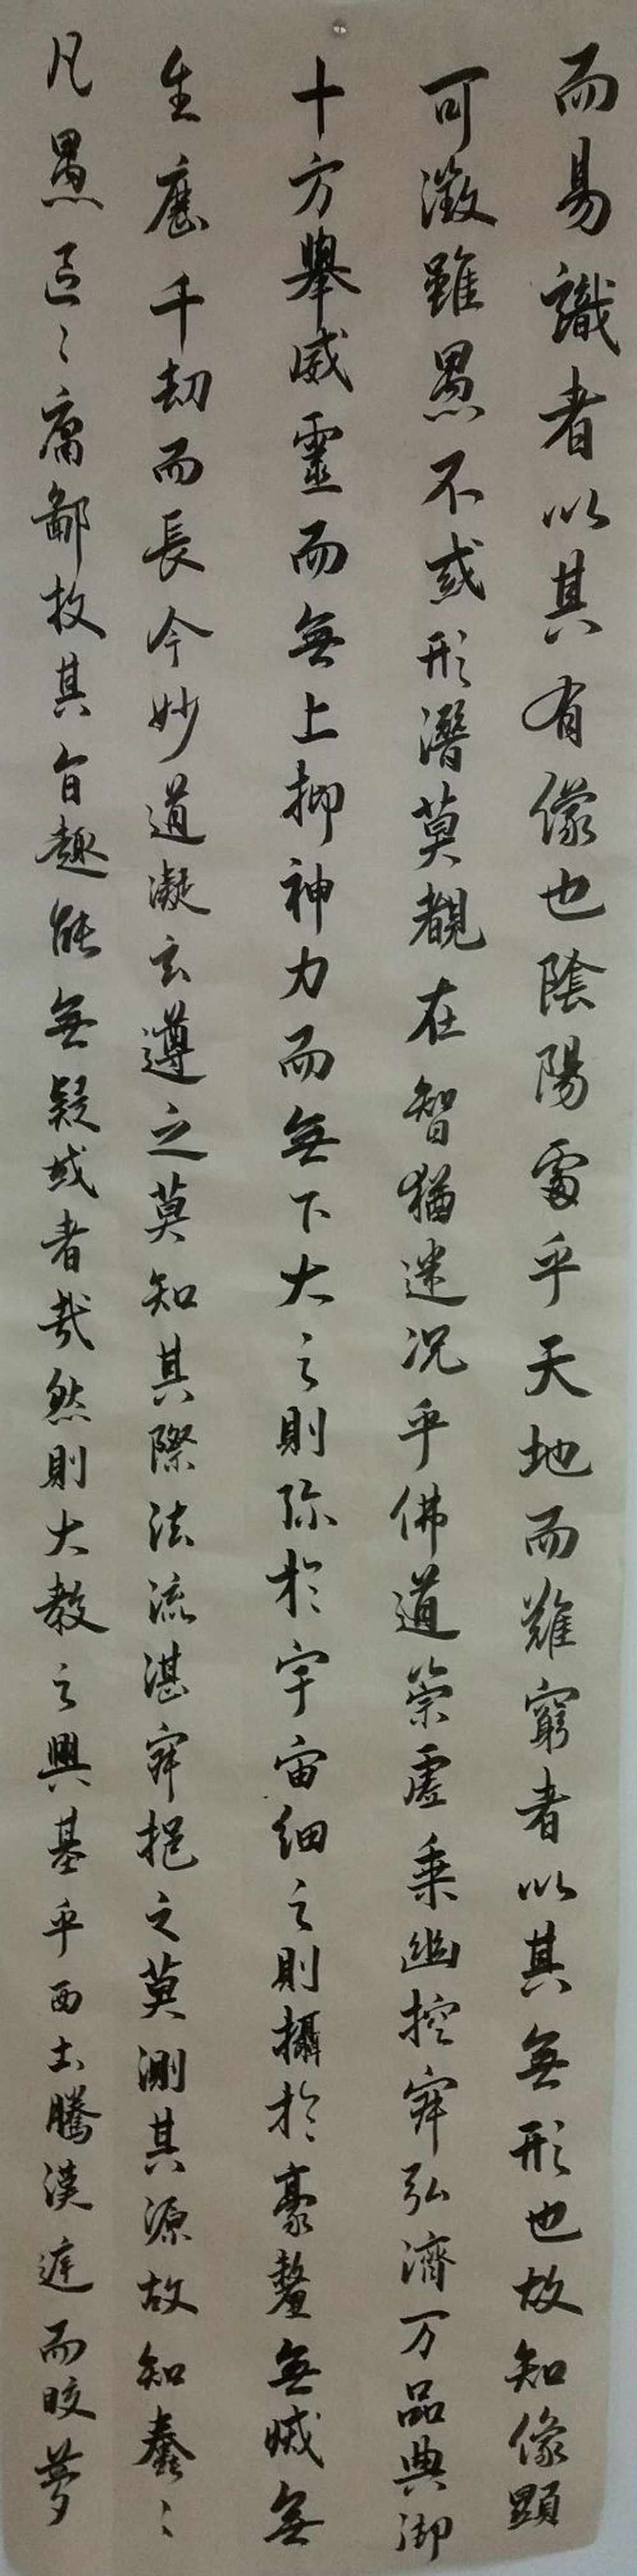 而易識者以其有像也陰陽處乎天地而難窮者以其無形也故知像顯
可徵雖愚不惑形潛莫覩在智猶迷况乎佛道崇虛乘幽控寂弘濟万品典御
十方舉威靈而無上抑神力而無下大之則弥於宇宙細之則攝於豪釐無滅無
生歷千劫而長今妙道凝玄遵之莫知其際法流湛寂挹之莫測其源故知蠢〻
凡愚區〻庸鄙投其旨趣能無疑或者哉然則大教之興基乎西土騰漢庭而皎夢